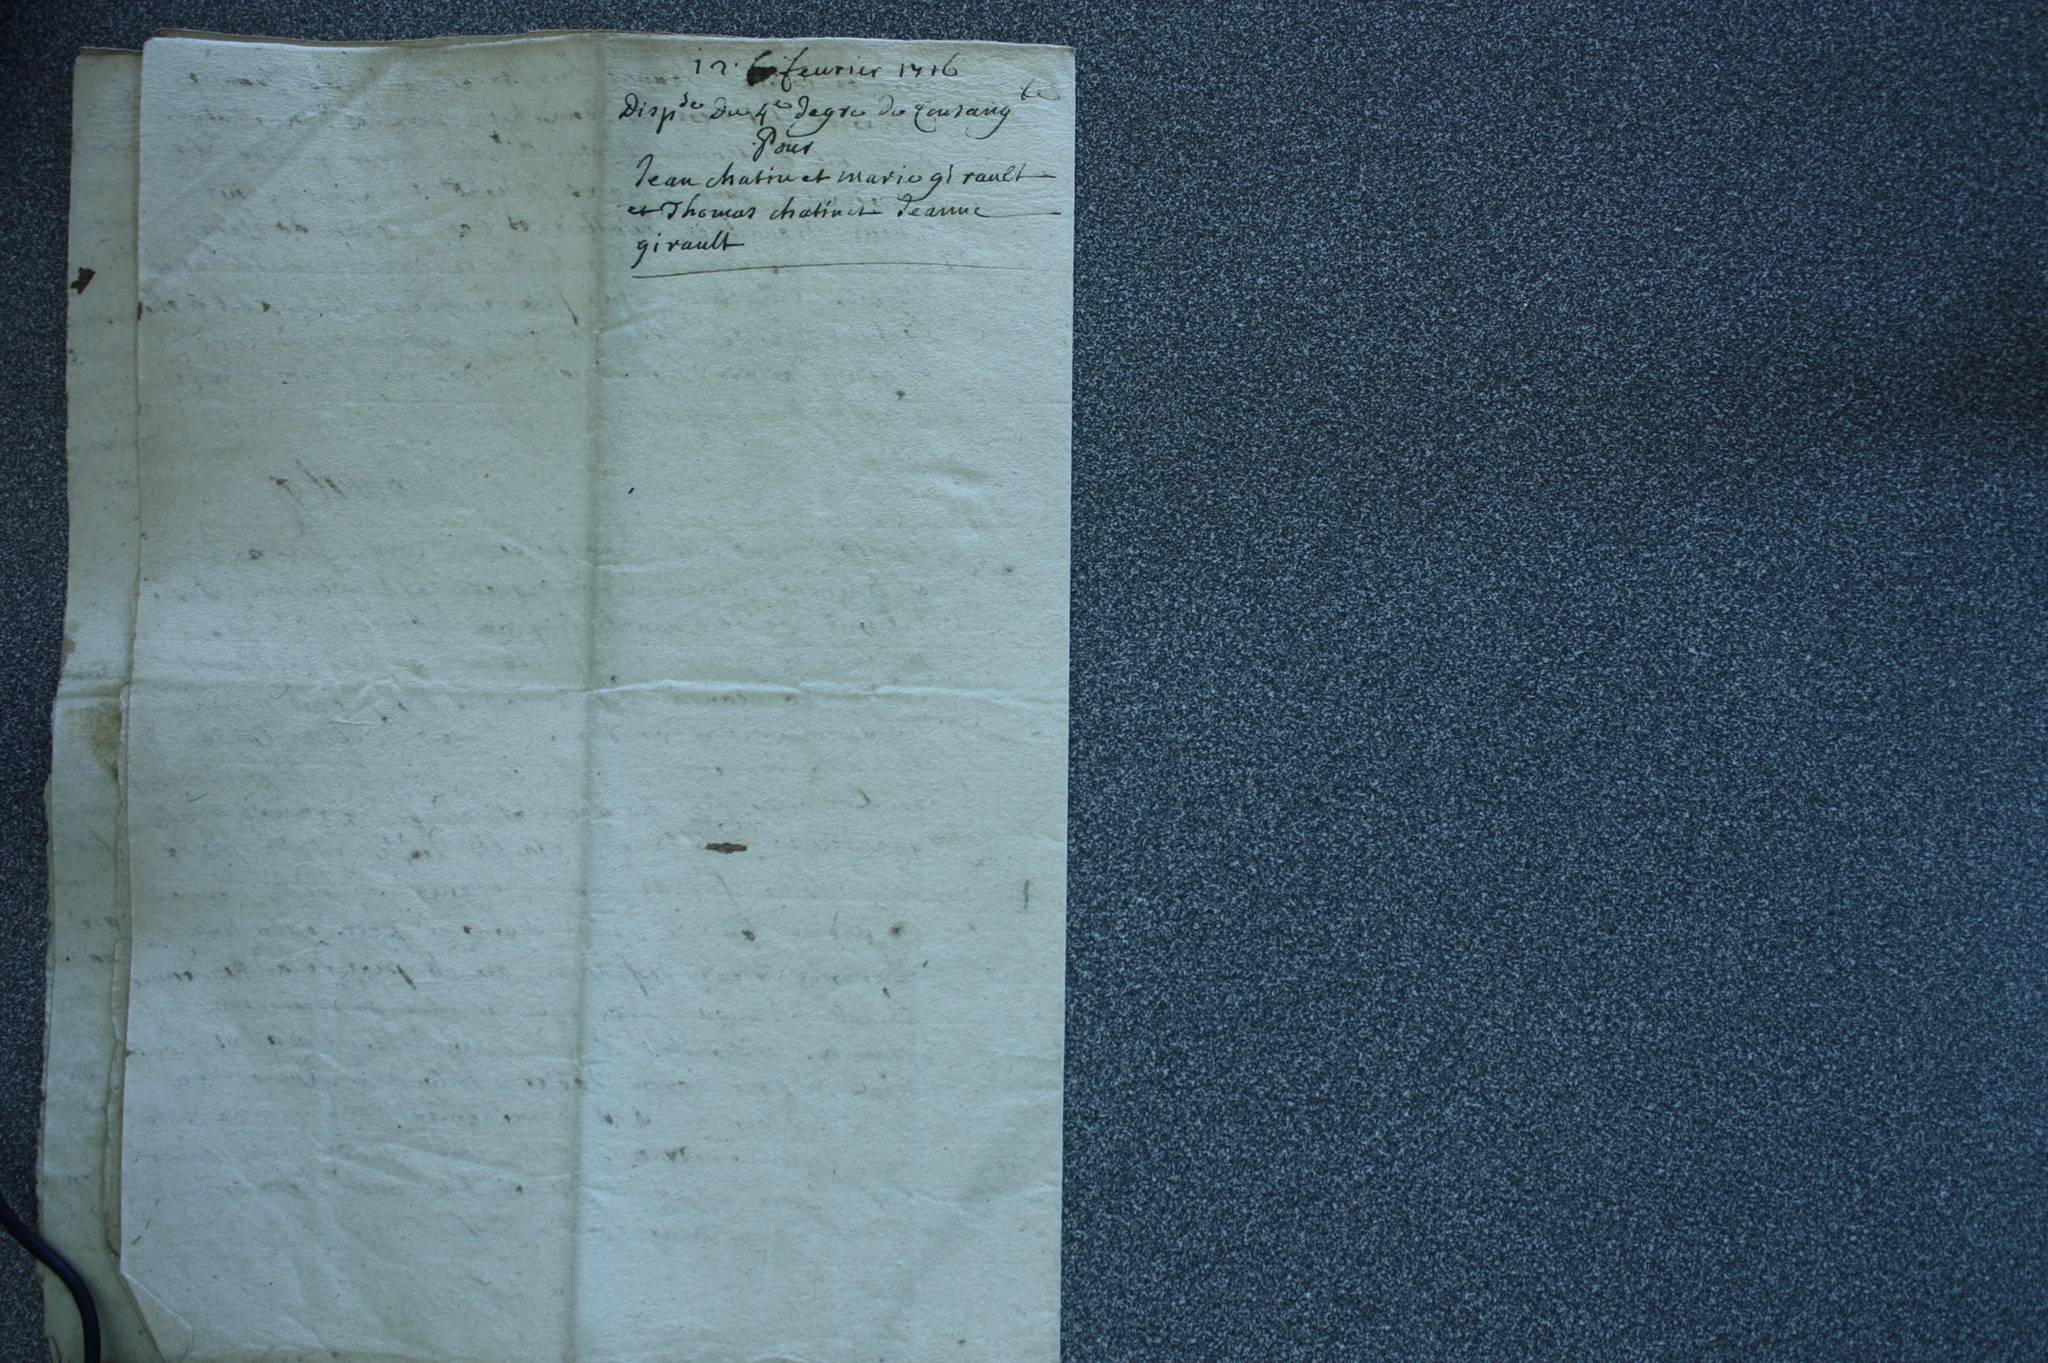 12. fevrier 1716
Disp.de Du 4e degre de Consang.té
Pour
Jean chatin et marie girault
et Thomas chatin et Jeanne
girault